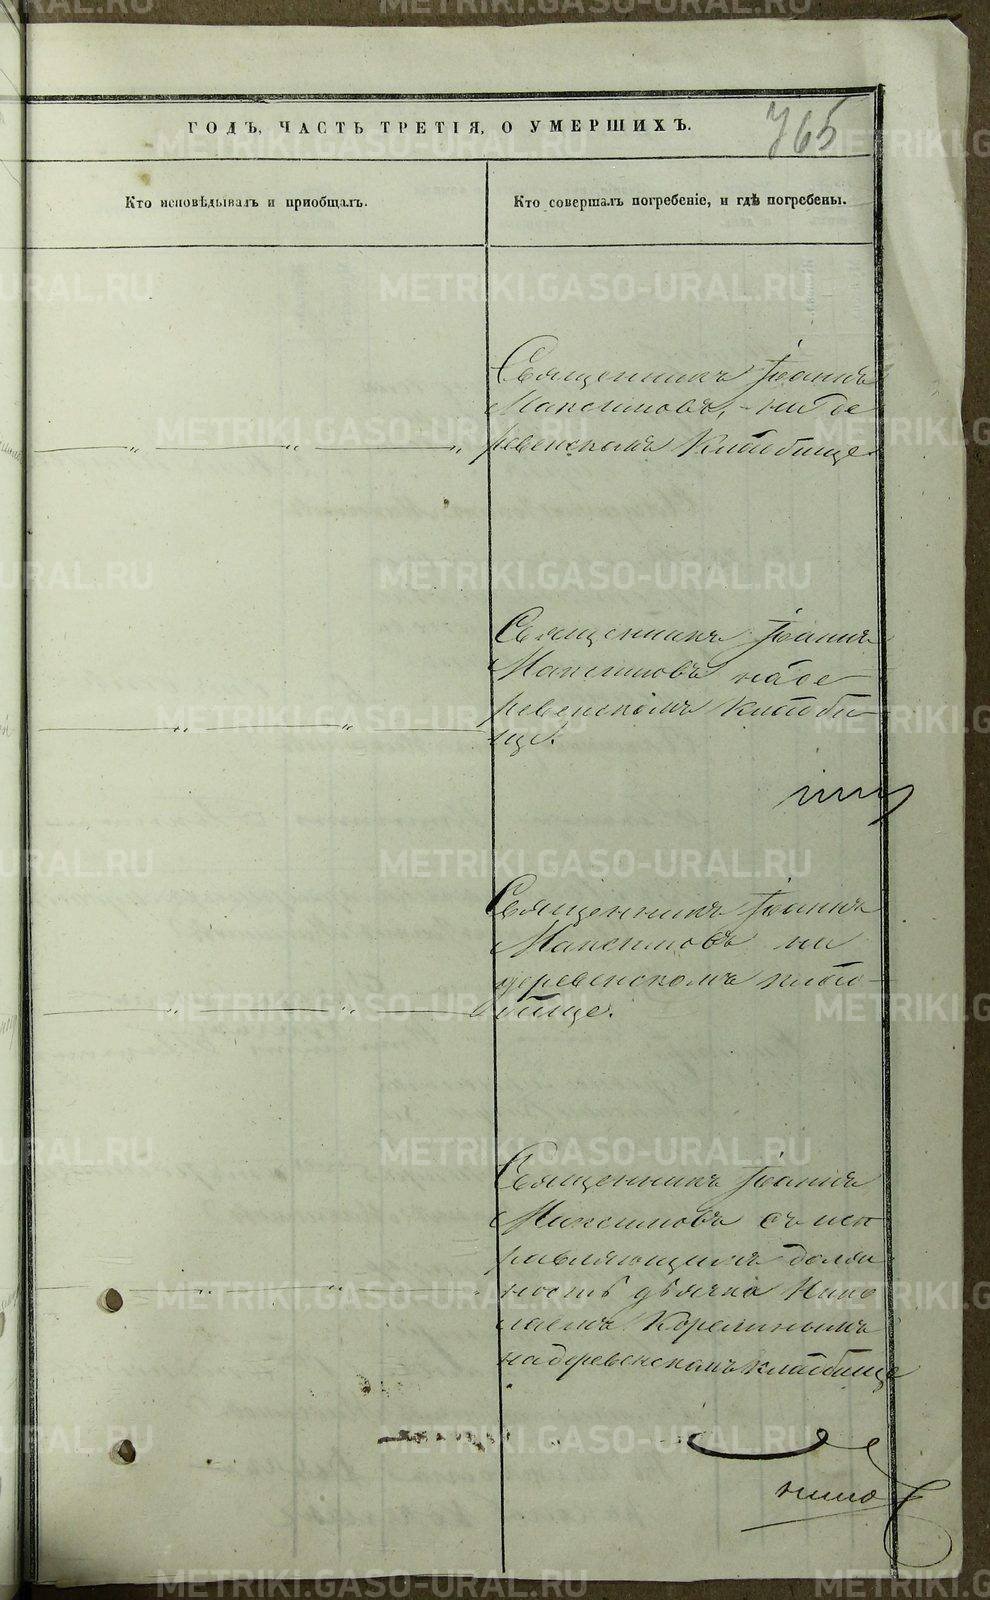 ГОДЪ, ЧАСТЬ ТРЕТІЯ, О УМЕРШИХЪ.
765
Кто исповѣдывалъ и пріобщалъ.
Кто совершалъ погребеніе, и гдѣ погребены.
Священникъ Іоаннъ
Максимовъ, на де
ревенскомъ кладбище
Священникъ Іоаннъ
Максимовъ на де
ревенскомъ кладби
ще.
Священникъ Іоаннъ
Максимовъ на
деревенскомъ кладо
бище.
Священникъ Іоаннъ
Максимовъ съ исп
равляющимъ долж
ность дьячка Нико
лаемъ
на деревенскомъ кладбище
METRIKI.GASO-URAL.RU